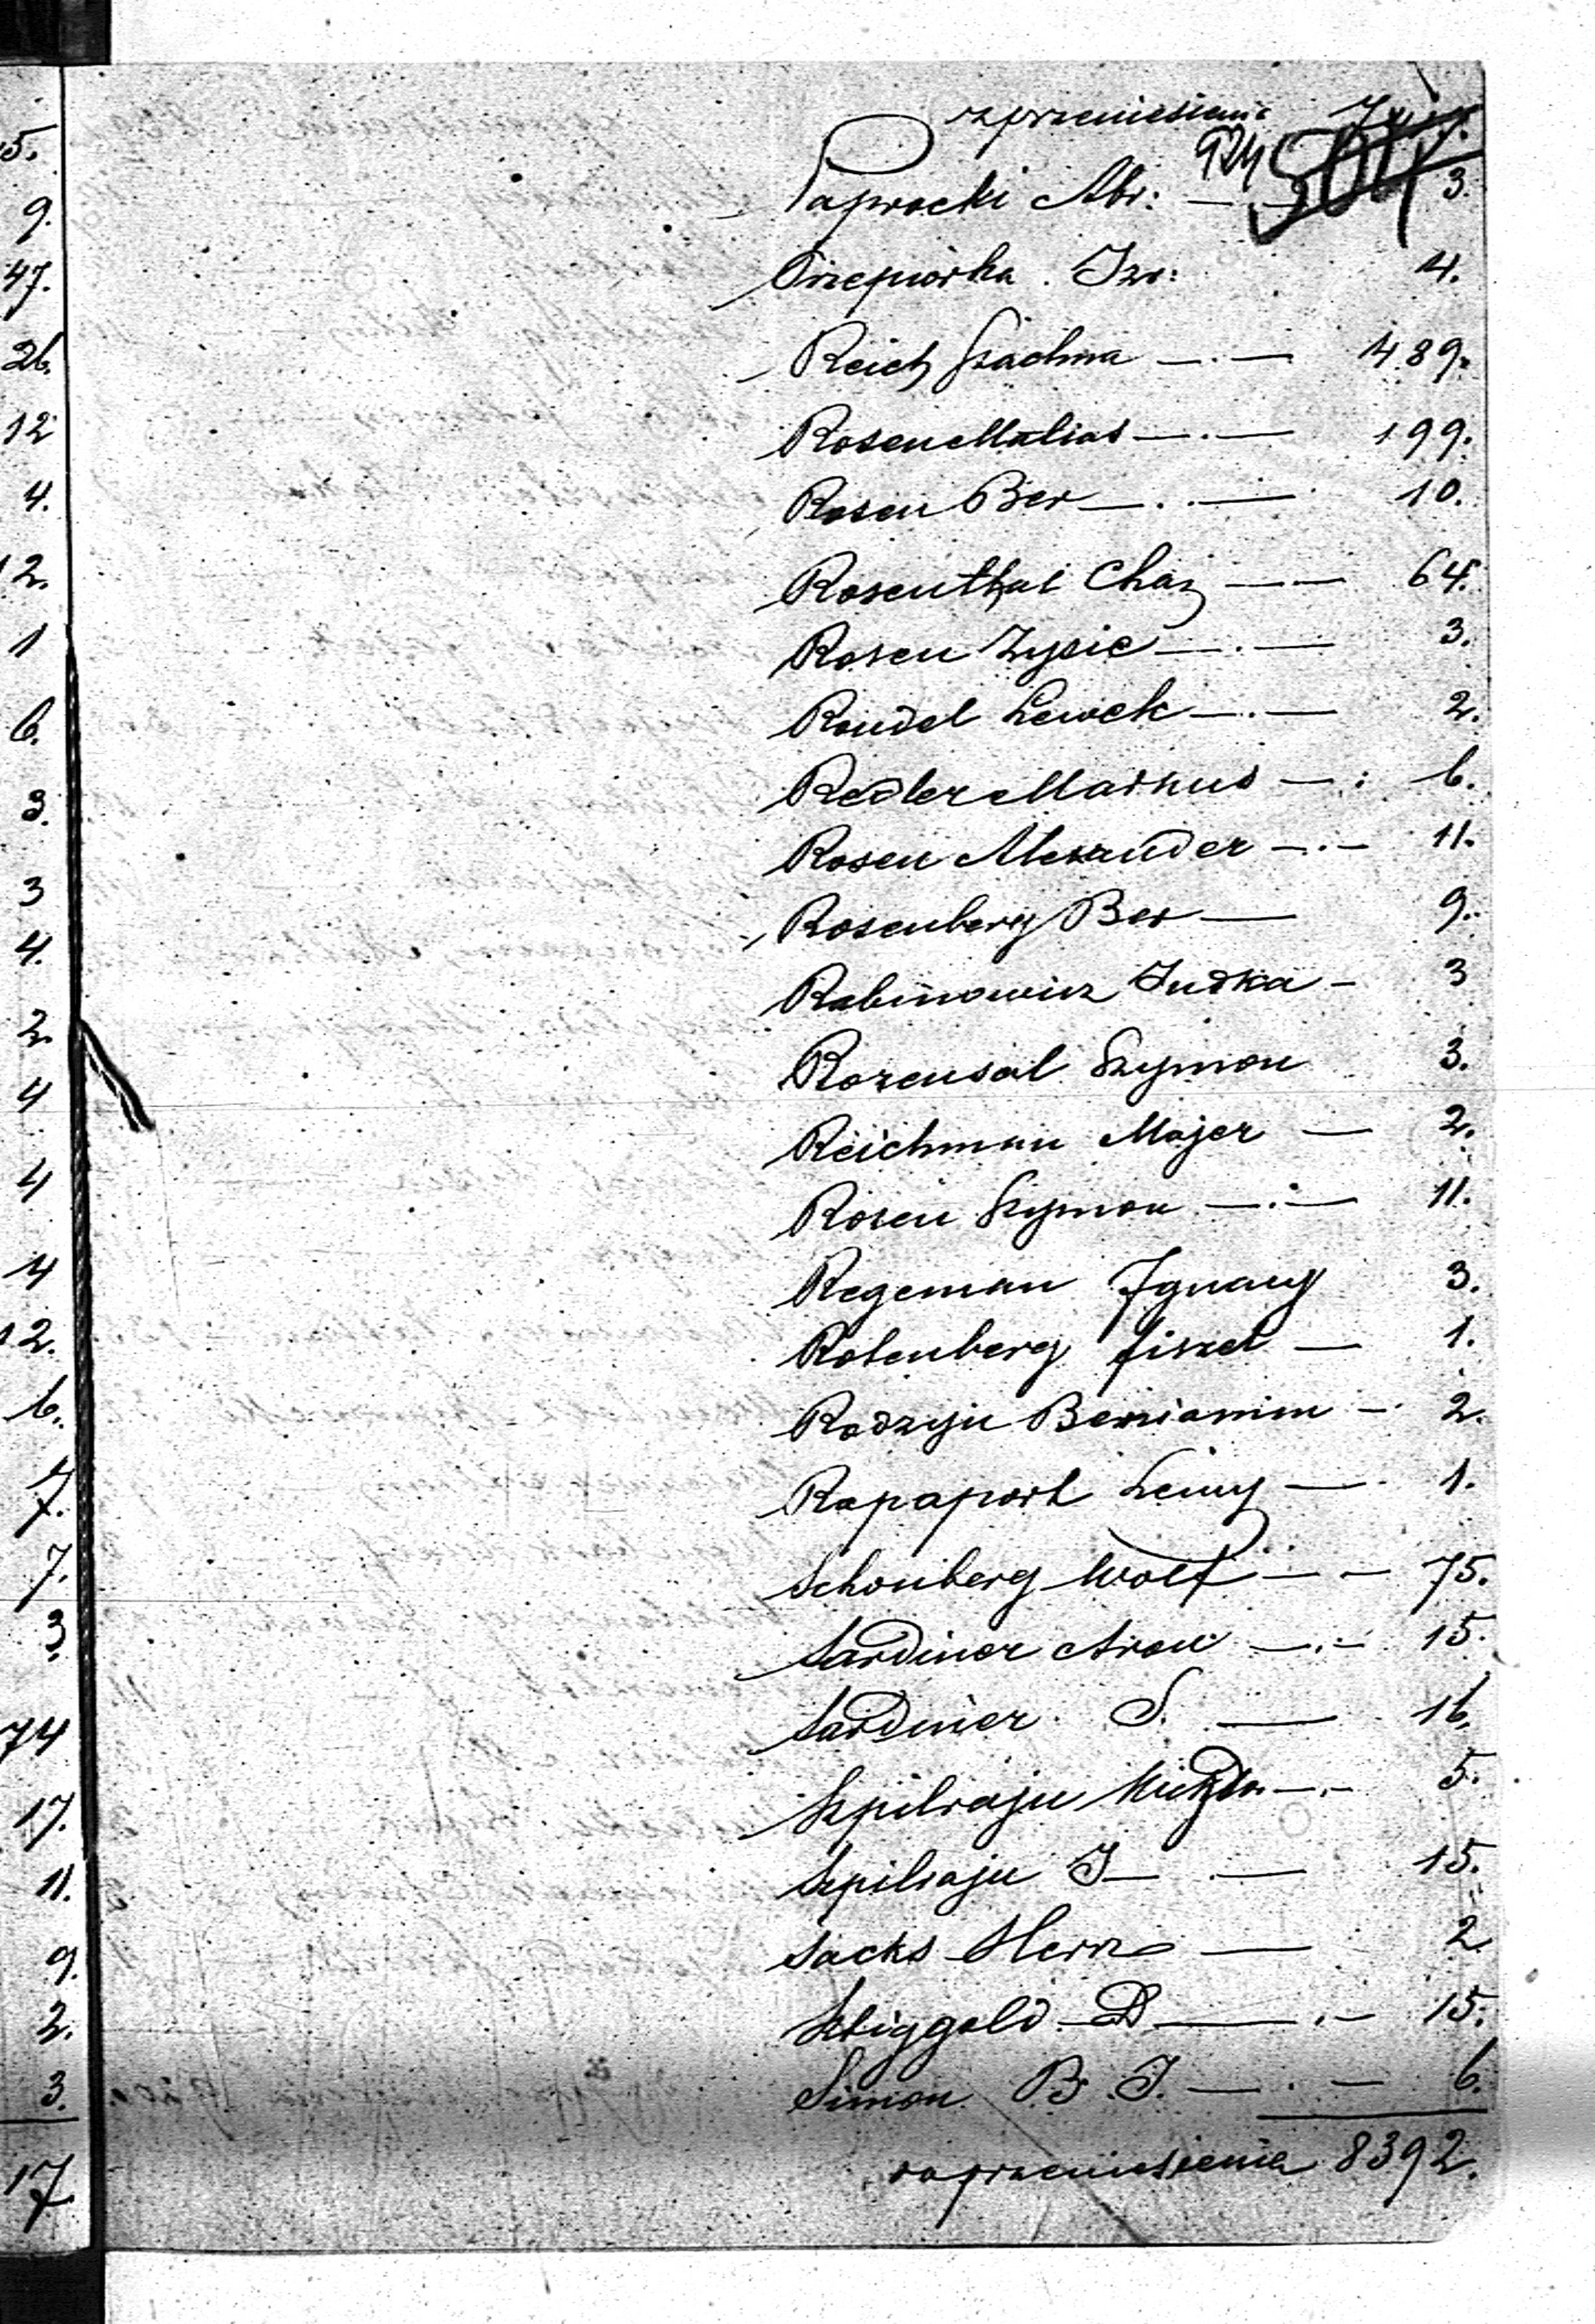 z przeniesienia
924
Paprocki Abr: — . — 3.
Przepiórka . Izr: 4.
Reich Szachna — . — 489.
Rosen Matias — . — 199.
Rosen Ber — . . — 10.
Rosenthal Chaj — — 64.
Rosen Zysie — . — 3.
Roudel Lewek — . — 2.
Redler Markus — . : 6.
Rosen Alexander — . — 11.
Rosenberg Ber — 9.
Rabinowicz Judka — 3
Rozensal Szymon 3.
Reichman Majer — 2.
Rosen Szymon — . — 11.
Regeman Ignacy 3.
Rotenberg fiszel — 1.
Rodzyn Beniamin — . 2.
Rapaport — . 1.
Schonberg Wolf — . — 75.
Sardiner Aron — . — 15.
Sardiner S. — 16.
Szpilrajn — . — 5.
Szpilrajn I — . — 15.
Sacks Herz — 2
Sztiggold D — . — 15.
Simon B. I. — . — 6.
do przeniesienia 8392.
5.
9.
47.
26.
12
4.
12.
1
6.
3.
3
4.
2.
4
4
4
12.
6.
7.
7.
3
74
17.
11.
9.
2.
3.
17